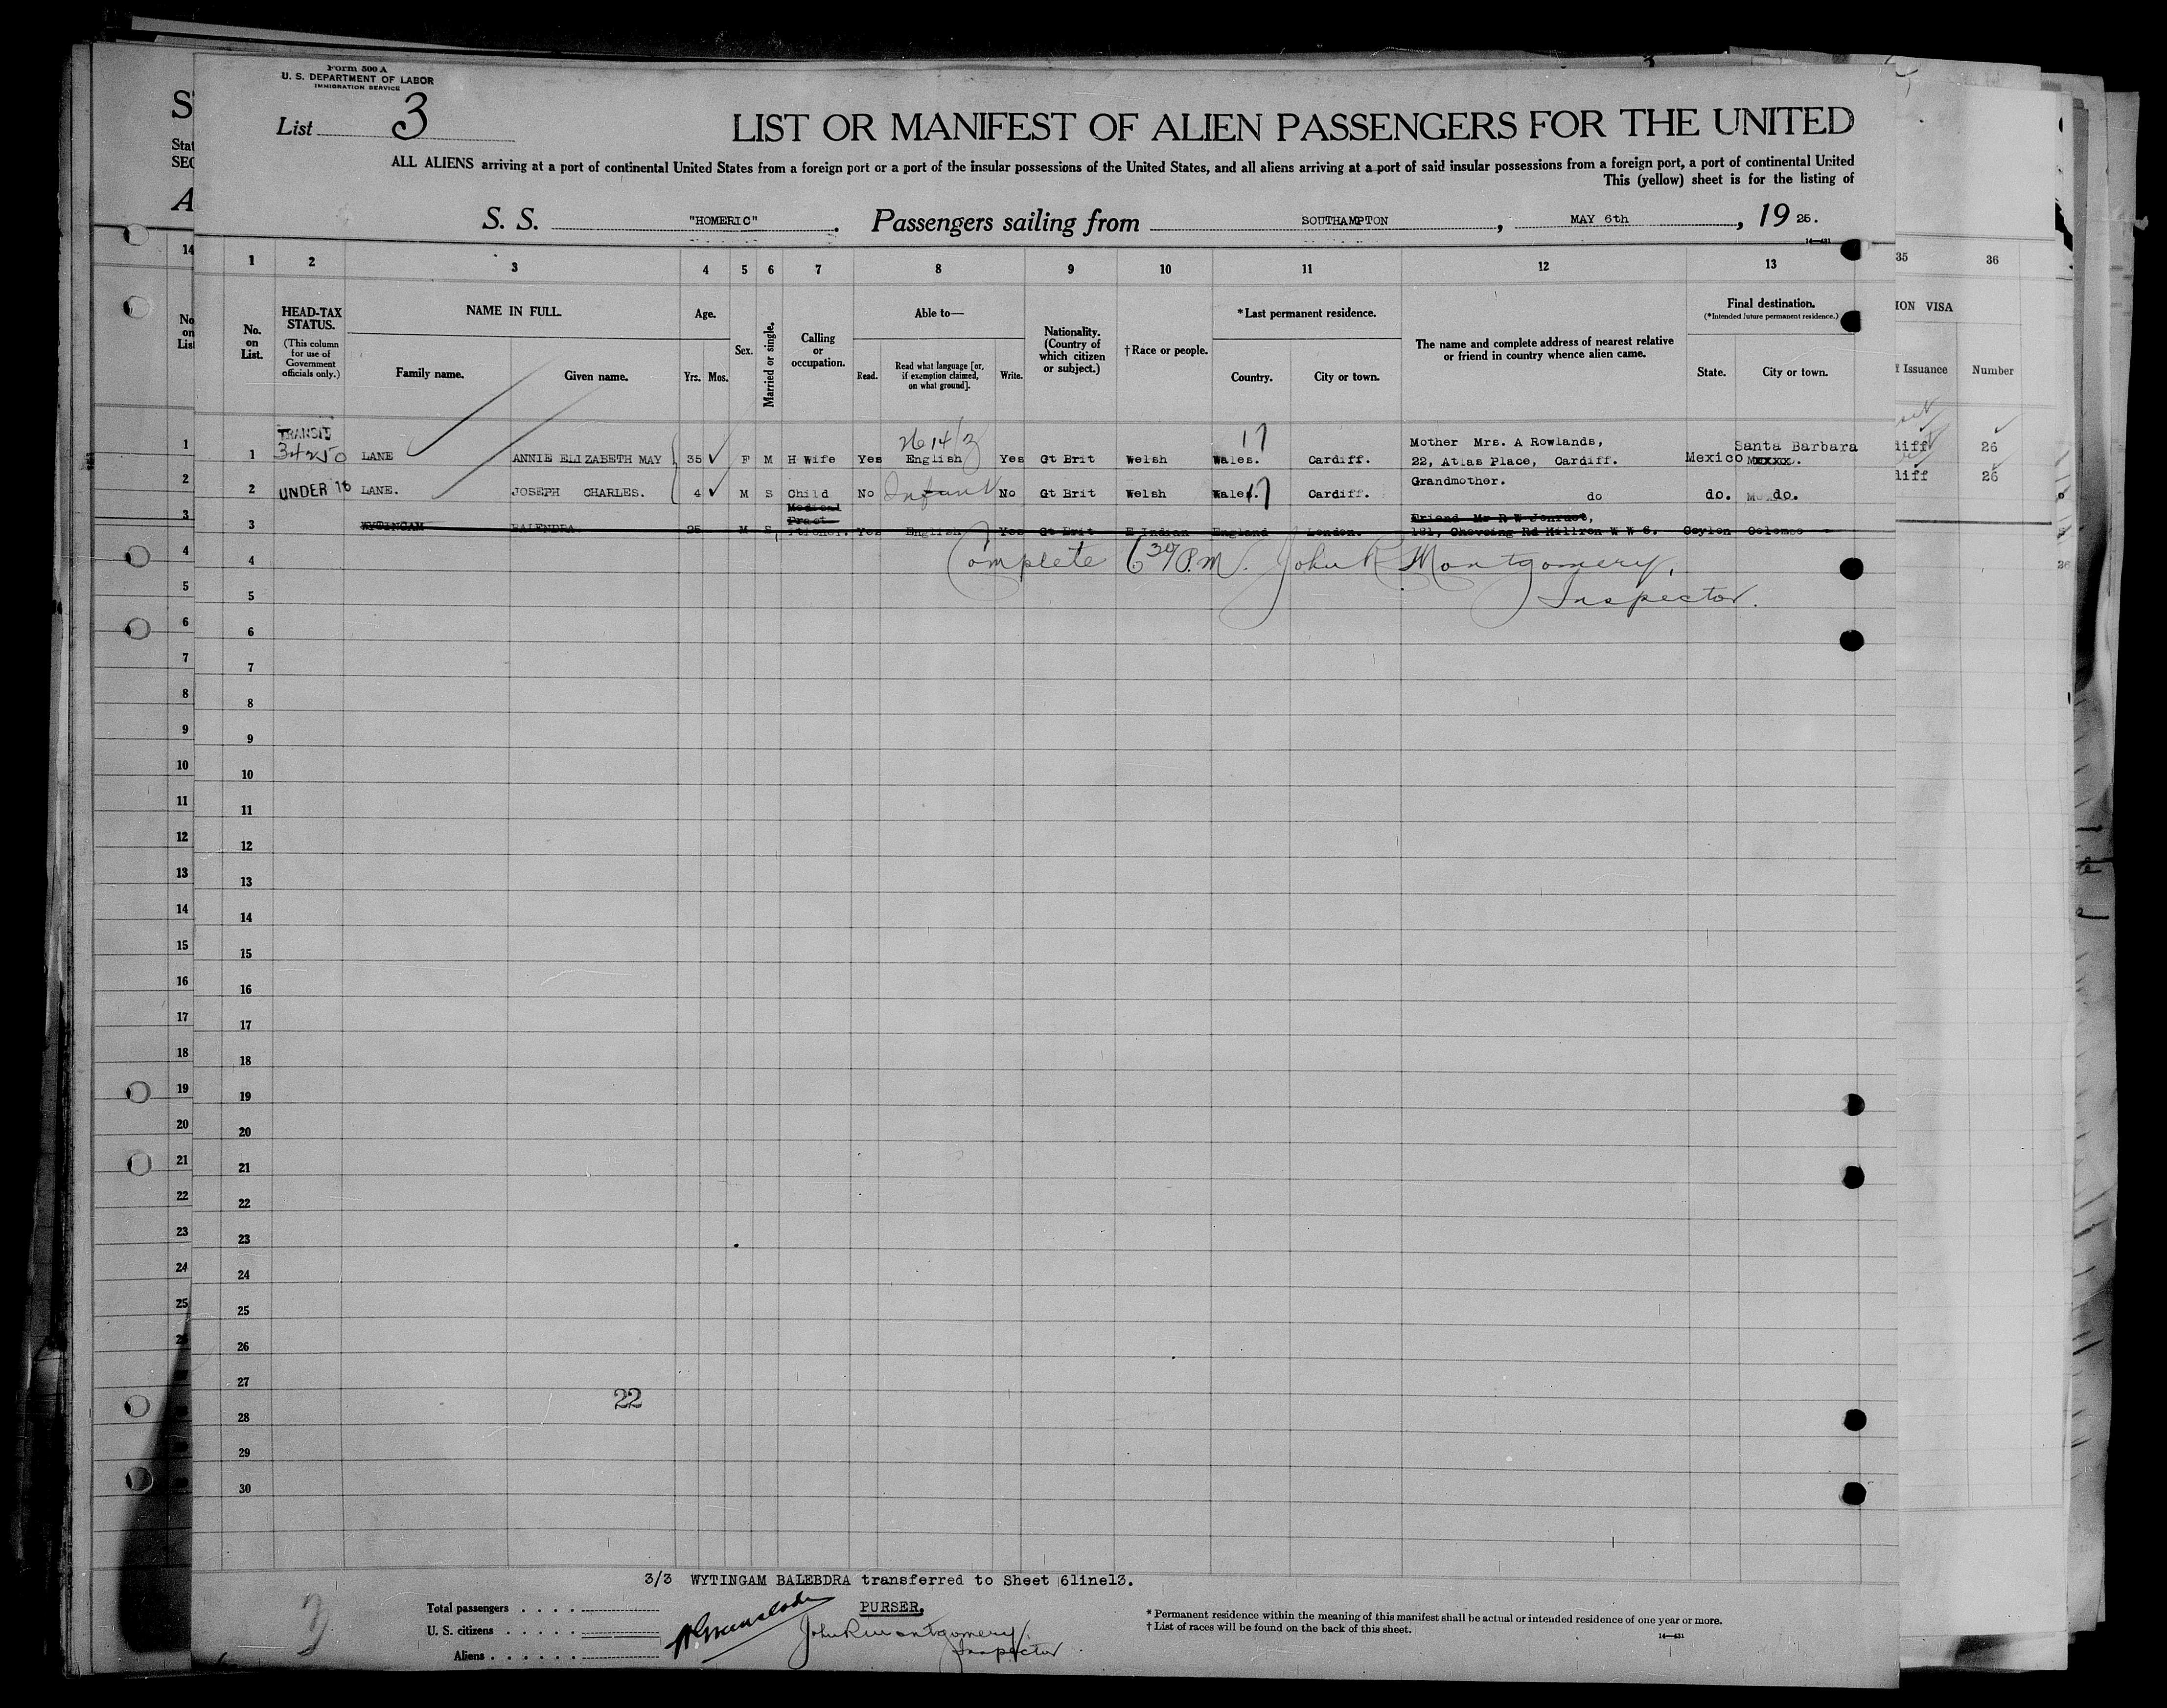 Form 500 A
U. S. DEPARTMENT OF LABOR
IMMIGRATION SERVICE
List 3
LIST OR MANIFEST OF ALIEN PASSENGERS FOR THE UNITED
ALL ALIENS arriving at a port of continental United States from a foreign port or a port of the insular possessions of the United States, and all aliens arriving at a port of said insular possessions from a foreign port, a port of continental United
This (yellow) sheet is for the listing of
S. S. "HOMERIC". Passengers sailing from SOUTHAMPTON, MAY 6th, 1925.
14—431
1 2 3 4 5 6 7 8 9 10 11 12 13
35 36
No. on List.
HEAD-TAX STATUS.
(This column for use of Government officials only.)
NAME IN FULL.
Family name. Given name.
Age.
Yrs. Mos.
Sex.
Married or single.
Calling or occupation.
Able to—
Read. Read what language [or, if exemption claimed, on what ground]. Write.
Nationality. (Country of which citizen or subject.)
†Race or people.
*Last permanent residence.
Country. City or town.
The name and complete address of nearest relative or friend in country whence alien came.
Final destination.
(*Intended future permanent residence.)
State. City or town.
ION VISA
Issuance Number
TRANSIT 26 14/3 17 Mother Mrs. A Rowlands, Santa Barbara
1 LANE ANNIE ELIZABETH MAY 35 F M H Wife Yes English Yes Gt Brit Welsh Wales. Cardiff. 22, Atlas Place, Cardiff. Mexico
liff 26
Grandmother.
2 UNDER 16 LANE. JOSEPH CHARLES. 4 M S Child No Infant No Gt Brit Welsh Wales. 17 Cardiff. do do. do.
liff 26
Medical Pract
3 WYTINGAM BALENDRA. 25 M S itioner. Yes English Yes Gt Brit E Indian England London. Friend Mr R W 181, Rd W W 6. Ceylon Colombo
4 Complete 6 30 P.M. John R Montgomery,
5 Inspector.
6
7
8
9
10
11
12
13
14
15
16
17
18
19
20
21
22
23
24
25
26
27
22
28
29
30
3/3 WYTINGAM BALEBDRA transferred to Sheet 6line13.
3
Total passengers
U. S. citizens
Aliens
PURSER.
John R Montgomery,
Inspector
* Permanent residence within the meaning of this manifest shall be actual or intended residence of one year or more.
† List of races will be found on the back of this sheet.
14—431